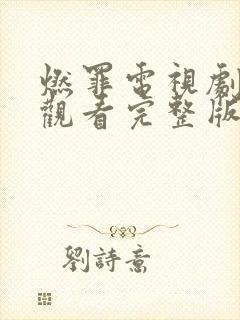 燃罪電視劇
觀看完整版
劉詩意